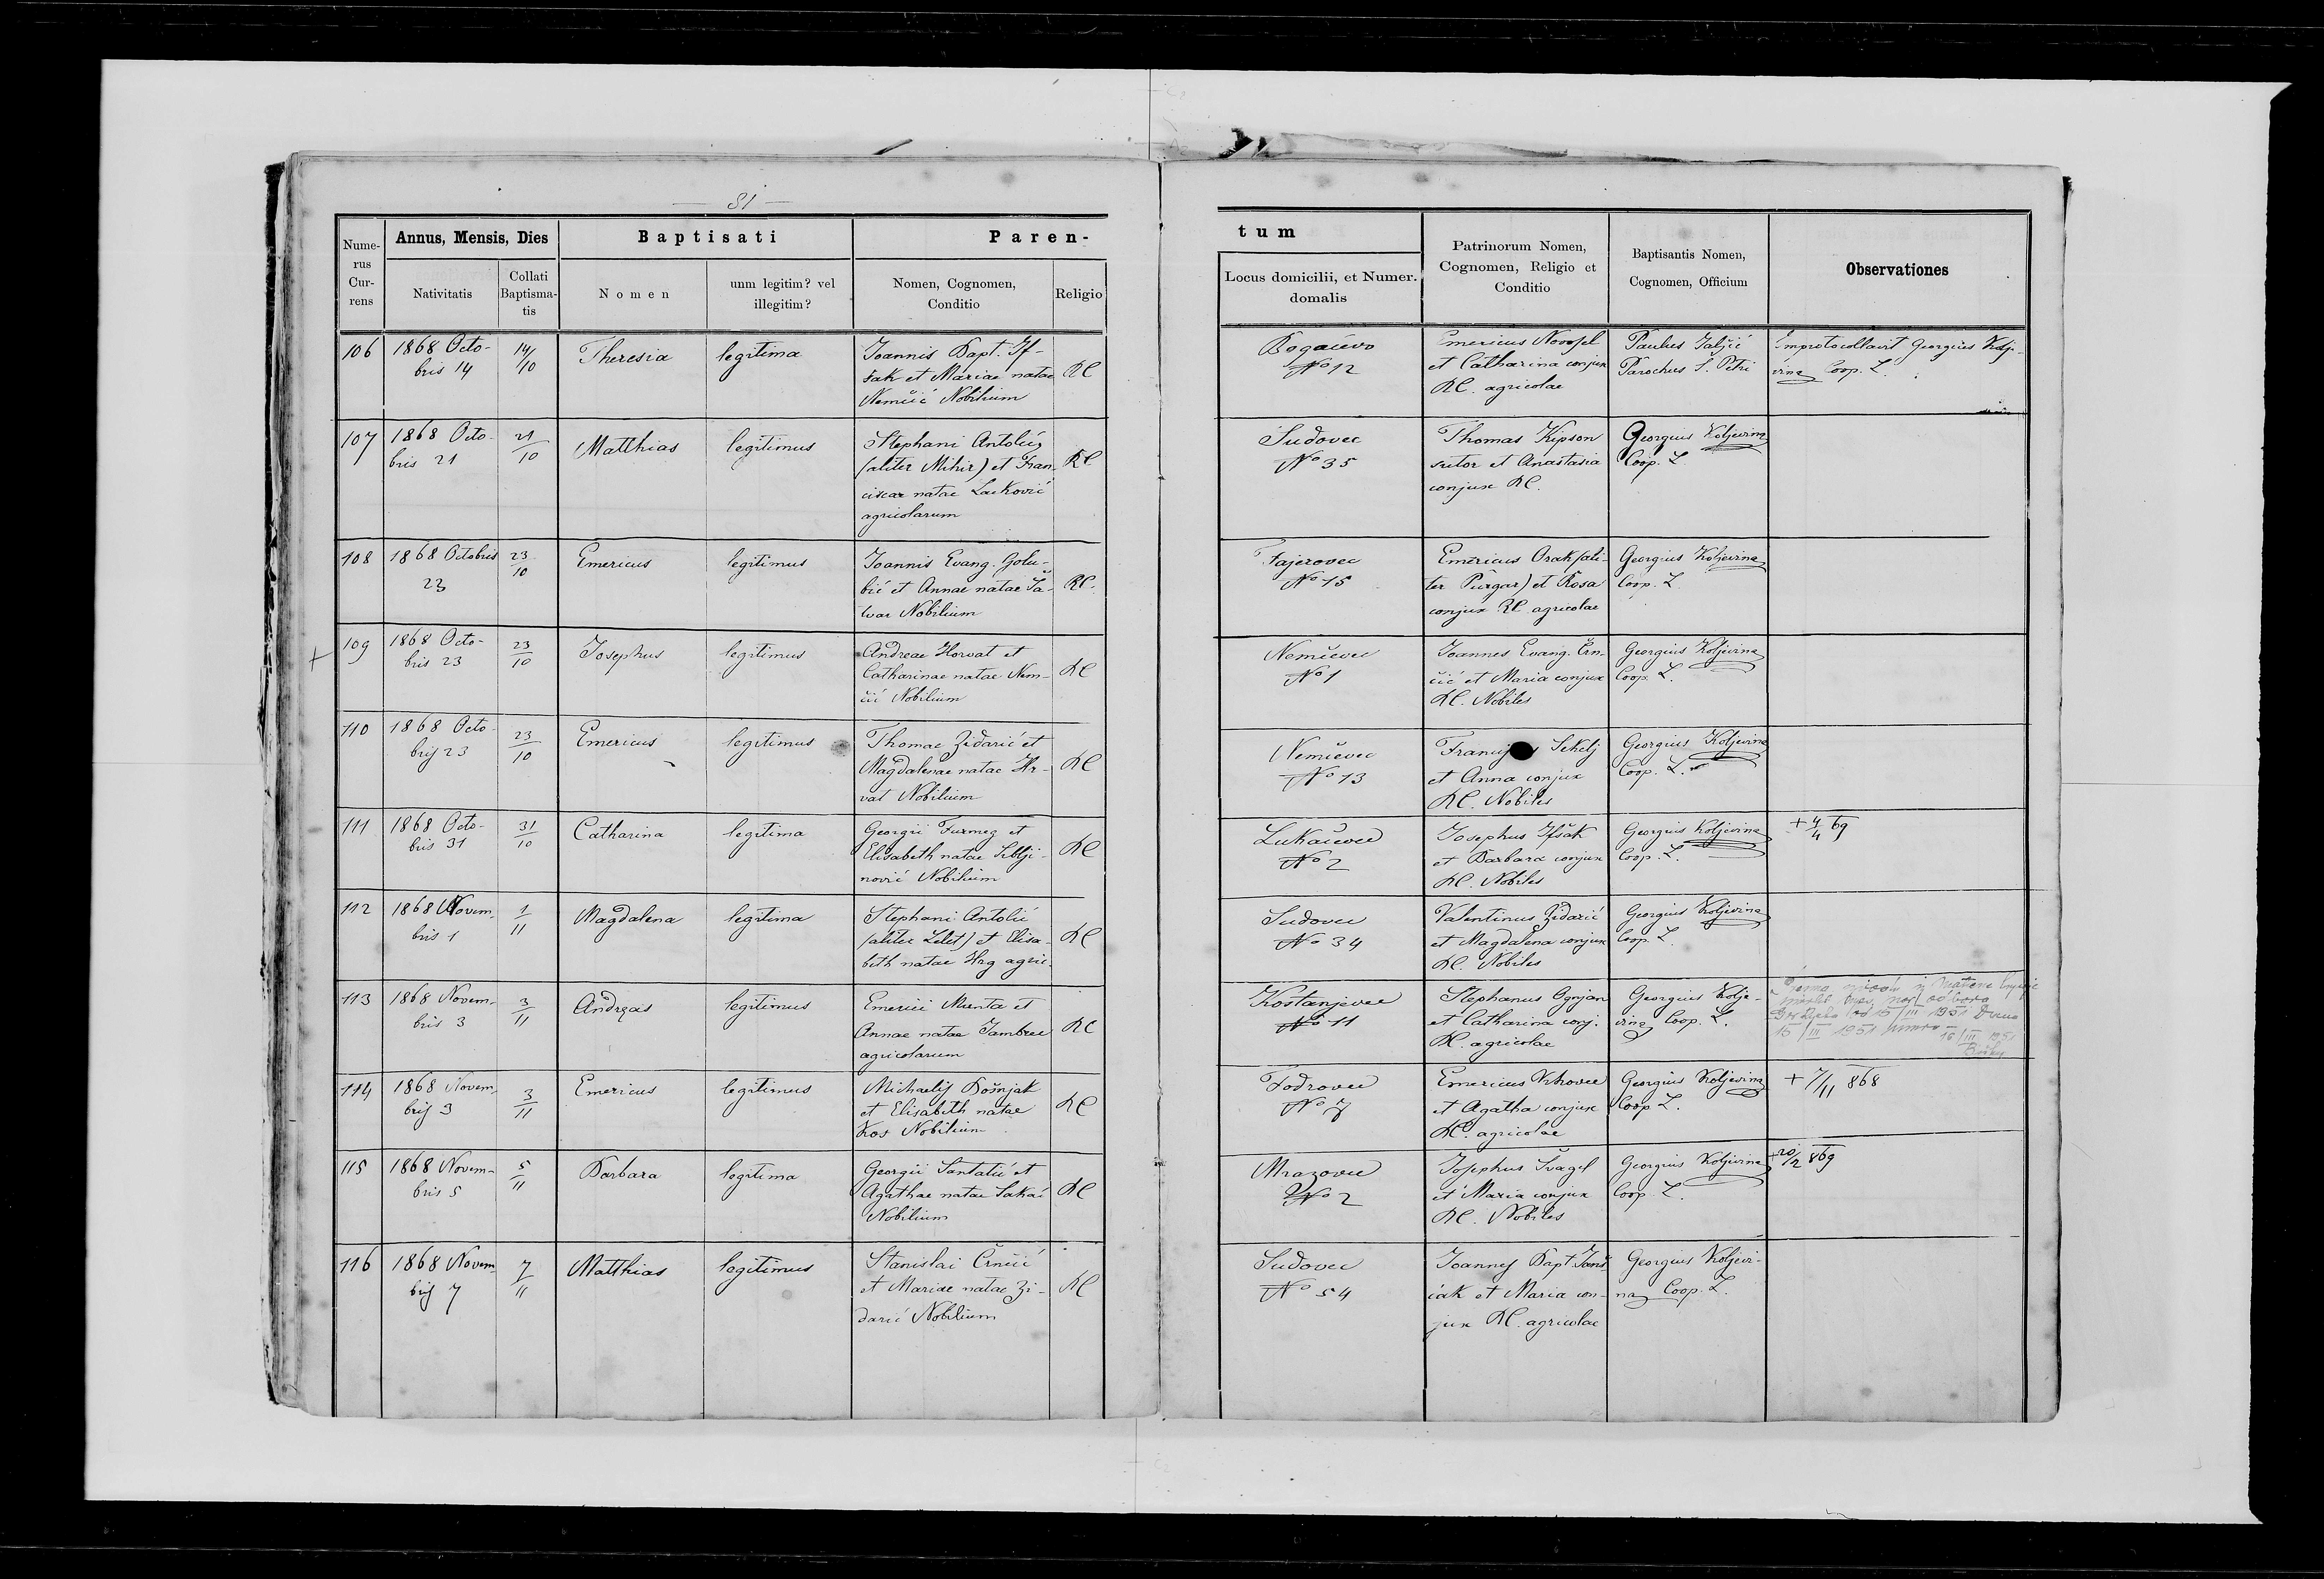 — 81 —
Nume-
rus
Cur-
rens
Annus, Mensis, Dies
Nativitatis
Collati
Baptisma-
tis
Baptisati
Nomen
unm legitim? vel
illegitim?
Paren-
Nomen, Cognomen,
Conditio
Religio
tum
Locus domicilii, et Numer.
domalis
Patrinorum Nomen,
Cognomen, Religio et
Conditio
Baptisantis Nomen,
Cognomen, Officium
Observationes
106
1868 Octo-
bris 14
14/10
Theresia
legitima
Joannis Bapt. If-
sak et Mariae natae
Nemčić Nobilium
RC
Bogačevo
No 12
Emericus Novosel
et Catharina conjux
RC. agricolae
Paulus
Parochus S. Petri
Improtocollavit Georgius Kolje-
vina Coop. L.
107
1868 Octo-
bris 21
21/10
Matthias
legitimus
Stephani Antolić
(aliter Mihir) et Fran-
ciscae natae Lacković
agricolarum
RC
Sudovec
No 35
Thomas Kipson
sutor et Anastasia
conjux RC.
Georgius Koljevina
Coop. L
108
1868 Octobris
23
23/10
Emericus
legitimus
Joannis Evang. Golu-
bić et Annae natae
Nobilium
RC.
Fajerovec
No 15
Emericus Orak (ali-
ter Purgar) et Rosa
conjux RC agricolae
Georgius Koljevina
Coop. L
109
1868 Octo-
bris 23
23/10
Josephus
legitimus
Andreae Horvat et
Catharinae natae Nem-
čić Nobilium
RC
Nemčevec
No 1
Joannes Evang. Črn-
čić et Maria conjux
RC. Nobiles
Georgius Koljevina
Coop. L.
110
1868 Octo-
bris 23
23/10
Emericus
legitimus
Thomae Zidarić et
Magdalenae natae Hr-
vat Nobilium
RC
Nemčevec
No 13
Sekelj
et Anna conjux
RC. Nobiles
Georgius Koljevina
Coop. L.
111
1868 Octo-
bris 31
31/10
Catharina
legitima
Georgii Furmeg et
Elisabeth natae
Nobilium
RC
Lukačevec
No 2
Josephus Ifšak
et Barbara conjux
RC. Nobiles
Georgius Koljevina
Coop. L.
+ 4/4 69
112
1868 Novem-
bris 1
1/11
Magdalena
legitima
Stephani Antolić
(aliter Lelet) et Elisa-
beth natae Hrg agric.
RC
Sudovec
No 34
Valentinus Zidarić
et Magdalena conjux
RC. Nobiles
Georgius Koljevina
Coop. L
113
1868 Novem-
bris 3
3/11
Andreas
legitimus
Emerici Munta et
Annae natae Jambrec
agricolarum
RC
Kostanjevec
No 11
Stephanus Ognjan
et Catharina conj.
RC. agricolae
Georgius Kolje-
vina Coop. L.
15/III 1951
15/III 1951
114
1868 Novem-
bris 3
3/11
Emericus
legitimus
Michaelis Bošnjak
et Elisabeth natae
Kos Nobilium
RC
Fodrovec
No 7
Emericus Vrhovec
et Agatha conjux
RC. agricolae
Georgius Koljevina
Coop L.
+ 7/11 868
115
1868 Novem-
bris 5
5/11
Barbara
legitima
Georgii Santalić et
Agathae natae Sakač
Nobilium
RC
Mrazovec
No 2
Josephus Švagel
et Maria conjux
RC. Nobiles
Georgius Koljevina
Coop. L.
+ 20/2 869
116
1868 Novem-
bris 7
7/11
Matthias
legitimus
Stanislai Črnčić
et Mariae natae Zi-
darić Nobilium
RC
Sudovec
No 54
Joannes Bapt. Janš-
čak et Maria con-
jux RC. agricolae
Georgius Koljevi-
na Coop. L.